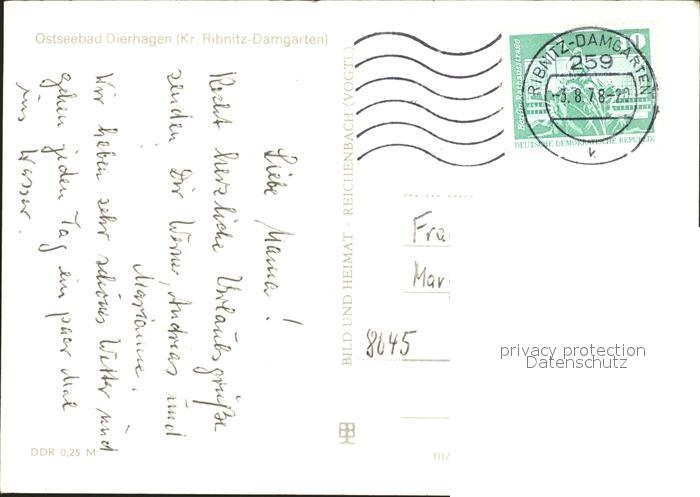 Ostseebad Dierhagen (Kr. Ribnitz-Damgarten)
Liebe Mama!
Recht herzliche Urlaubsgrüße
senden Dir Werner, Andreas und
Marianne.
Wir haben sehr schönes Wetter und
gehen jeden Tag ein paar Mal
ins Wasser.
DDR 0,25 M
BILD UND HEIMAT · REICHENBACH (VOGTL)
RIBNITZ-DAMGARTEN
259
-3.8.78-22
k
10
DEUTSCHE DEMOKRATISCHE REPUBLIK
Fra
Mar
8045
privacy protection
Datenschutz